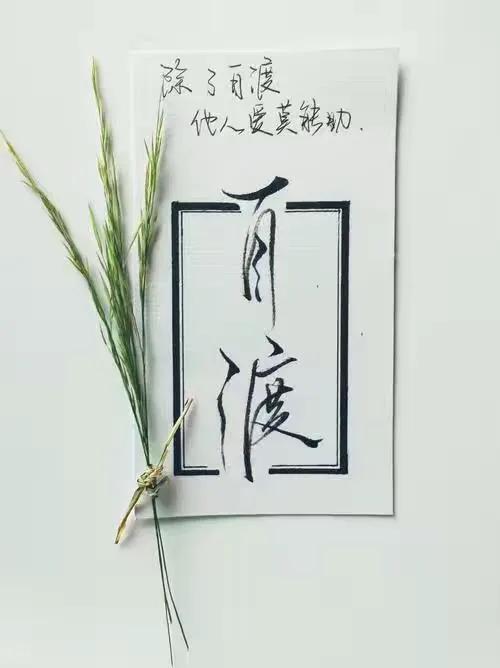 除了百渡
他人爱莫能助.
百
渡